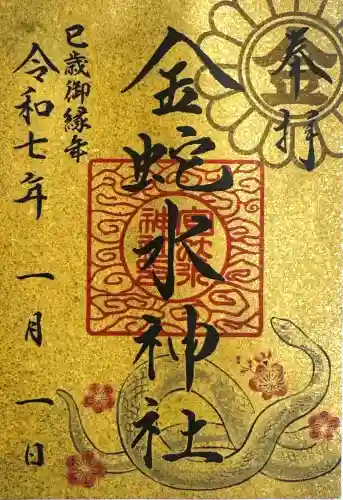 奉拝
金蛇水神社
巳歳御縁年
令和七年 一月 一日
金